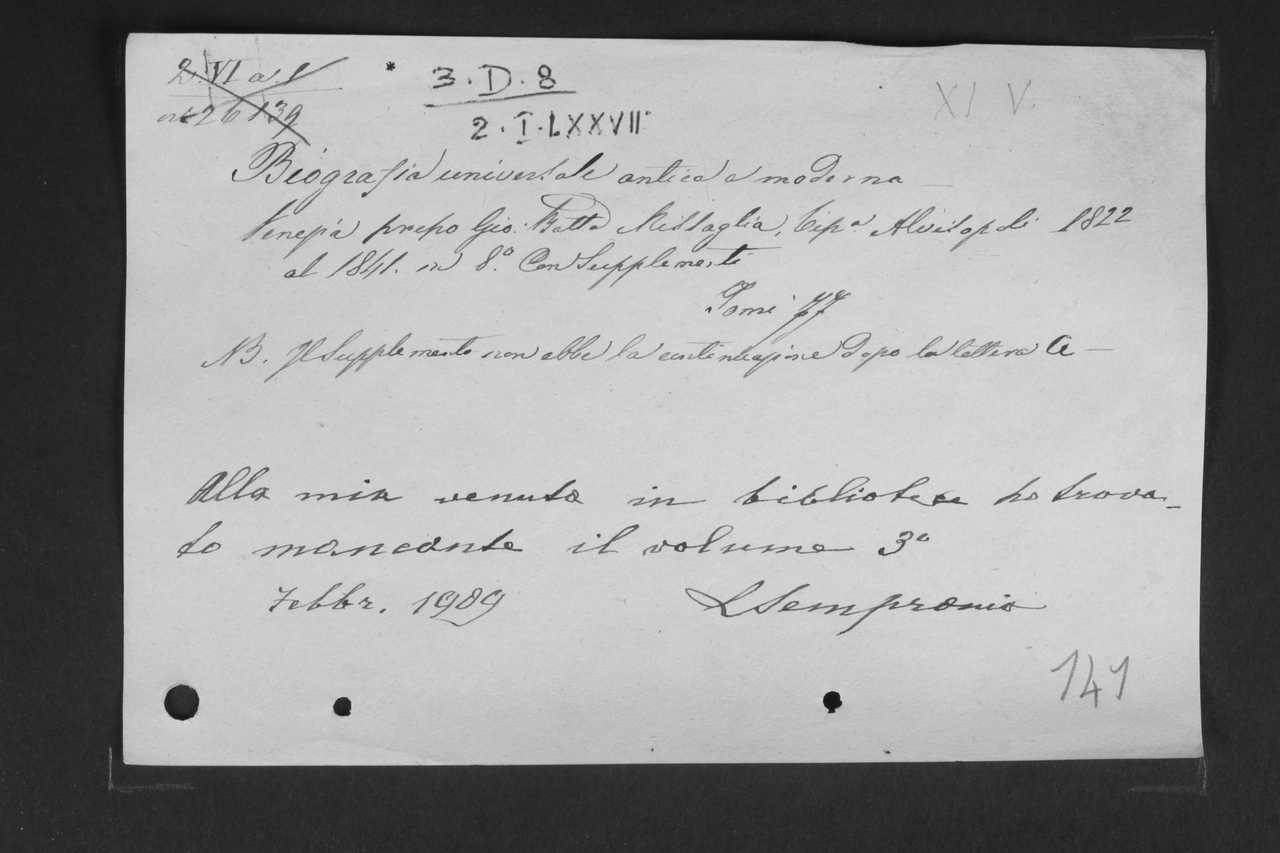 2. VI a. 1
* 3. D. 8
XI V.
26 139
2. I. LXXVII
Biografia universale antica e moderna
Venezia presso Gio. Batta Missaglia, Tip.a Alvisopoli 1822
al 1841. in 8.o Con Supplementi
Tomi 77
NB. Il Supplemento non ebbe la continuazione dopo la lettera C
Alla mia venuta in biblioteca ho trova-
to mancante il volume 3o
Febbr. 1909 LSempronio
141